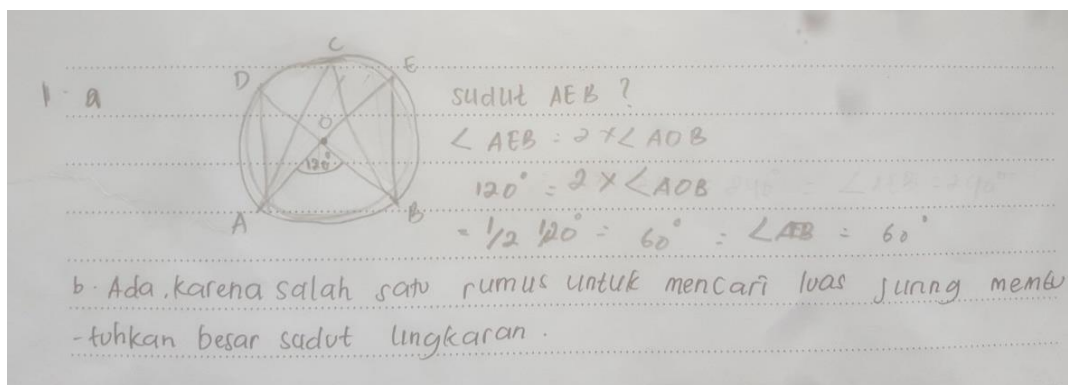 1. a
C
D
E
O
120°
A
B
sudut AEB ?
∠ AEB = 2 × ∠ AOB
120° = 2 × ∠AOB
= 1/2 120° = 60° = ∠AEB = 60°
b. Ada. karena salah satu rumus untuk mencari luas juring membu
-tuhkan besar sudut lingkaran.